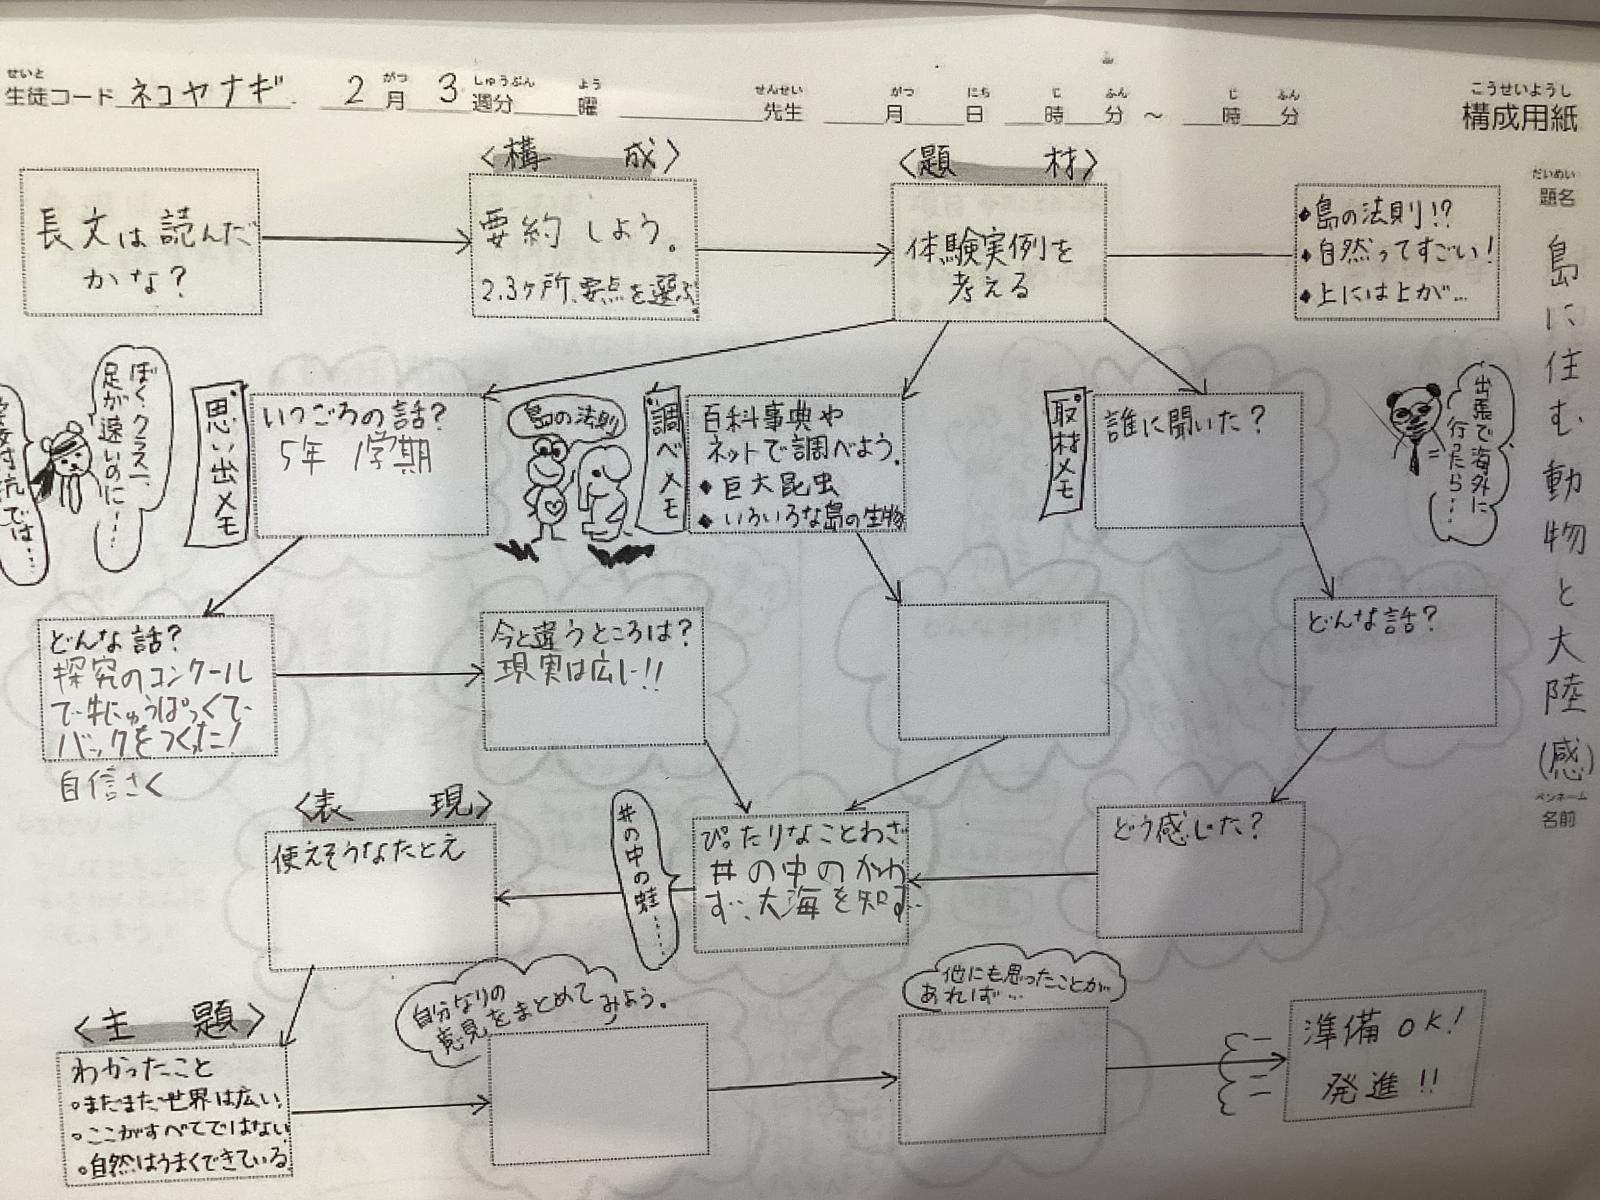 せいと
生徒コード ネコヤナギ 2月 3週分 曜 先生 月 日 時 分 ～ 時 分
がつ しゅうぶん よう せんせい がつ にち じ ふん じ ふん
こうせいようし
構成用紙
だいめい
題名
島に住む動物と大陸(感)
ペンネーム
名前
長文は読んだ
かな?
〈構成〉
要約しよう。
2.3ヶ所、要点を選ぶ
〈題材〉
体験実例を
考える
◆島の法則!?
◆自然ってすごい!
◆上には上が…
ぼく、クラス一、
足が速いのに……
では…
思い出メモ
いつごろの話?
5年 1学期
島の法則
調べメモ
百科事典や
ネットで調べよう。
◆巨大昆虫
◆いろいろな島の生物
取材メモ
誰に聞いた?
出張で海外に
行ったら…
どんな話?
探究のコンクール
で牛にゅうぱっくで
バックをつくった!
自信さく
今と違うところは?
現実は広い!!
どんな話?
どう感じた?
井の中の蛙……
ぴったりなことわざ
井の中のかわ
ず、大海を知ず
〈表現〉
使えそうなたとえ
〈主題〉
わかったこと
◦まだまだ世界は広い
◦ここがすべてではない
◦自然はうまくできている
自分なりの
意見をまとめて
みよう。
他にも思ったことが
あれば…
準備OK!
発進!!